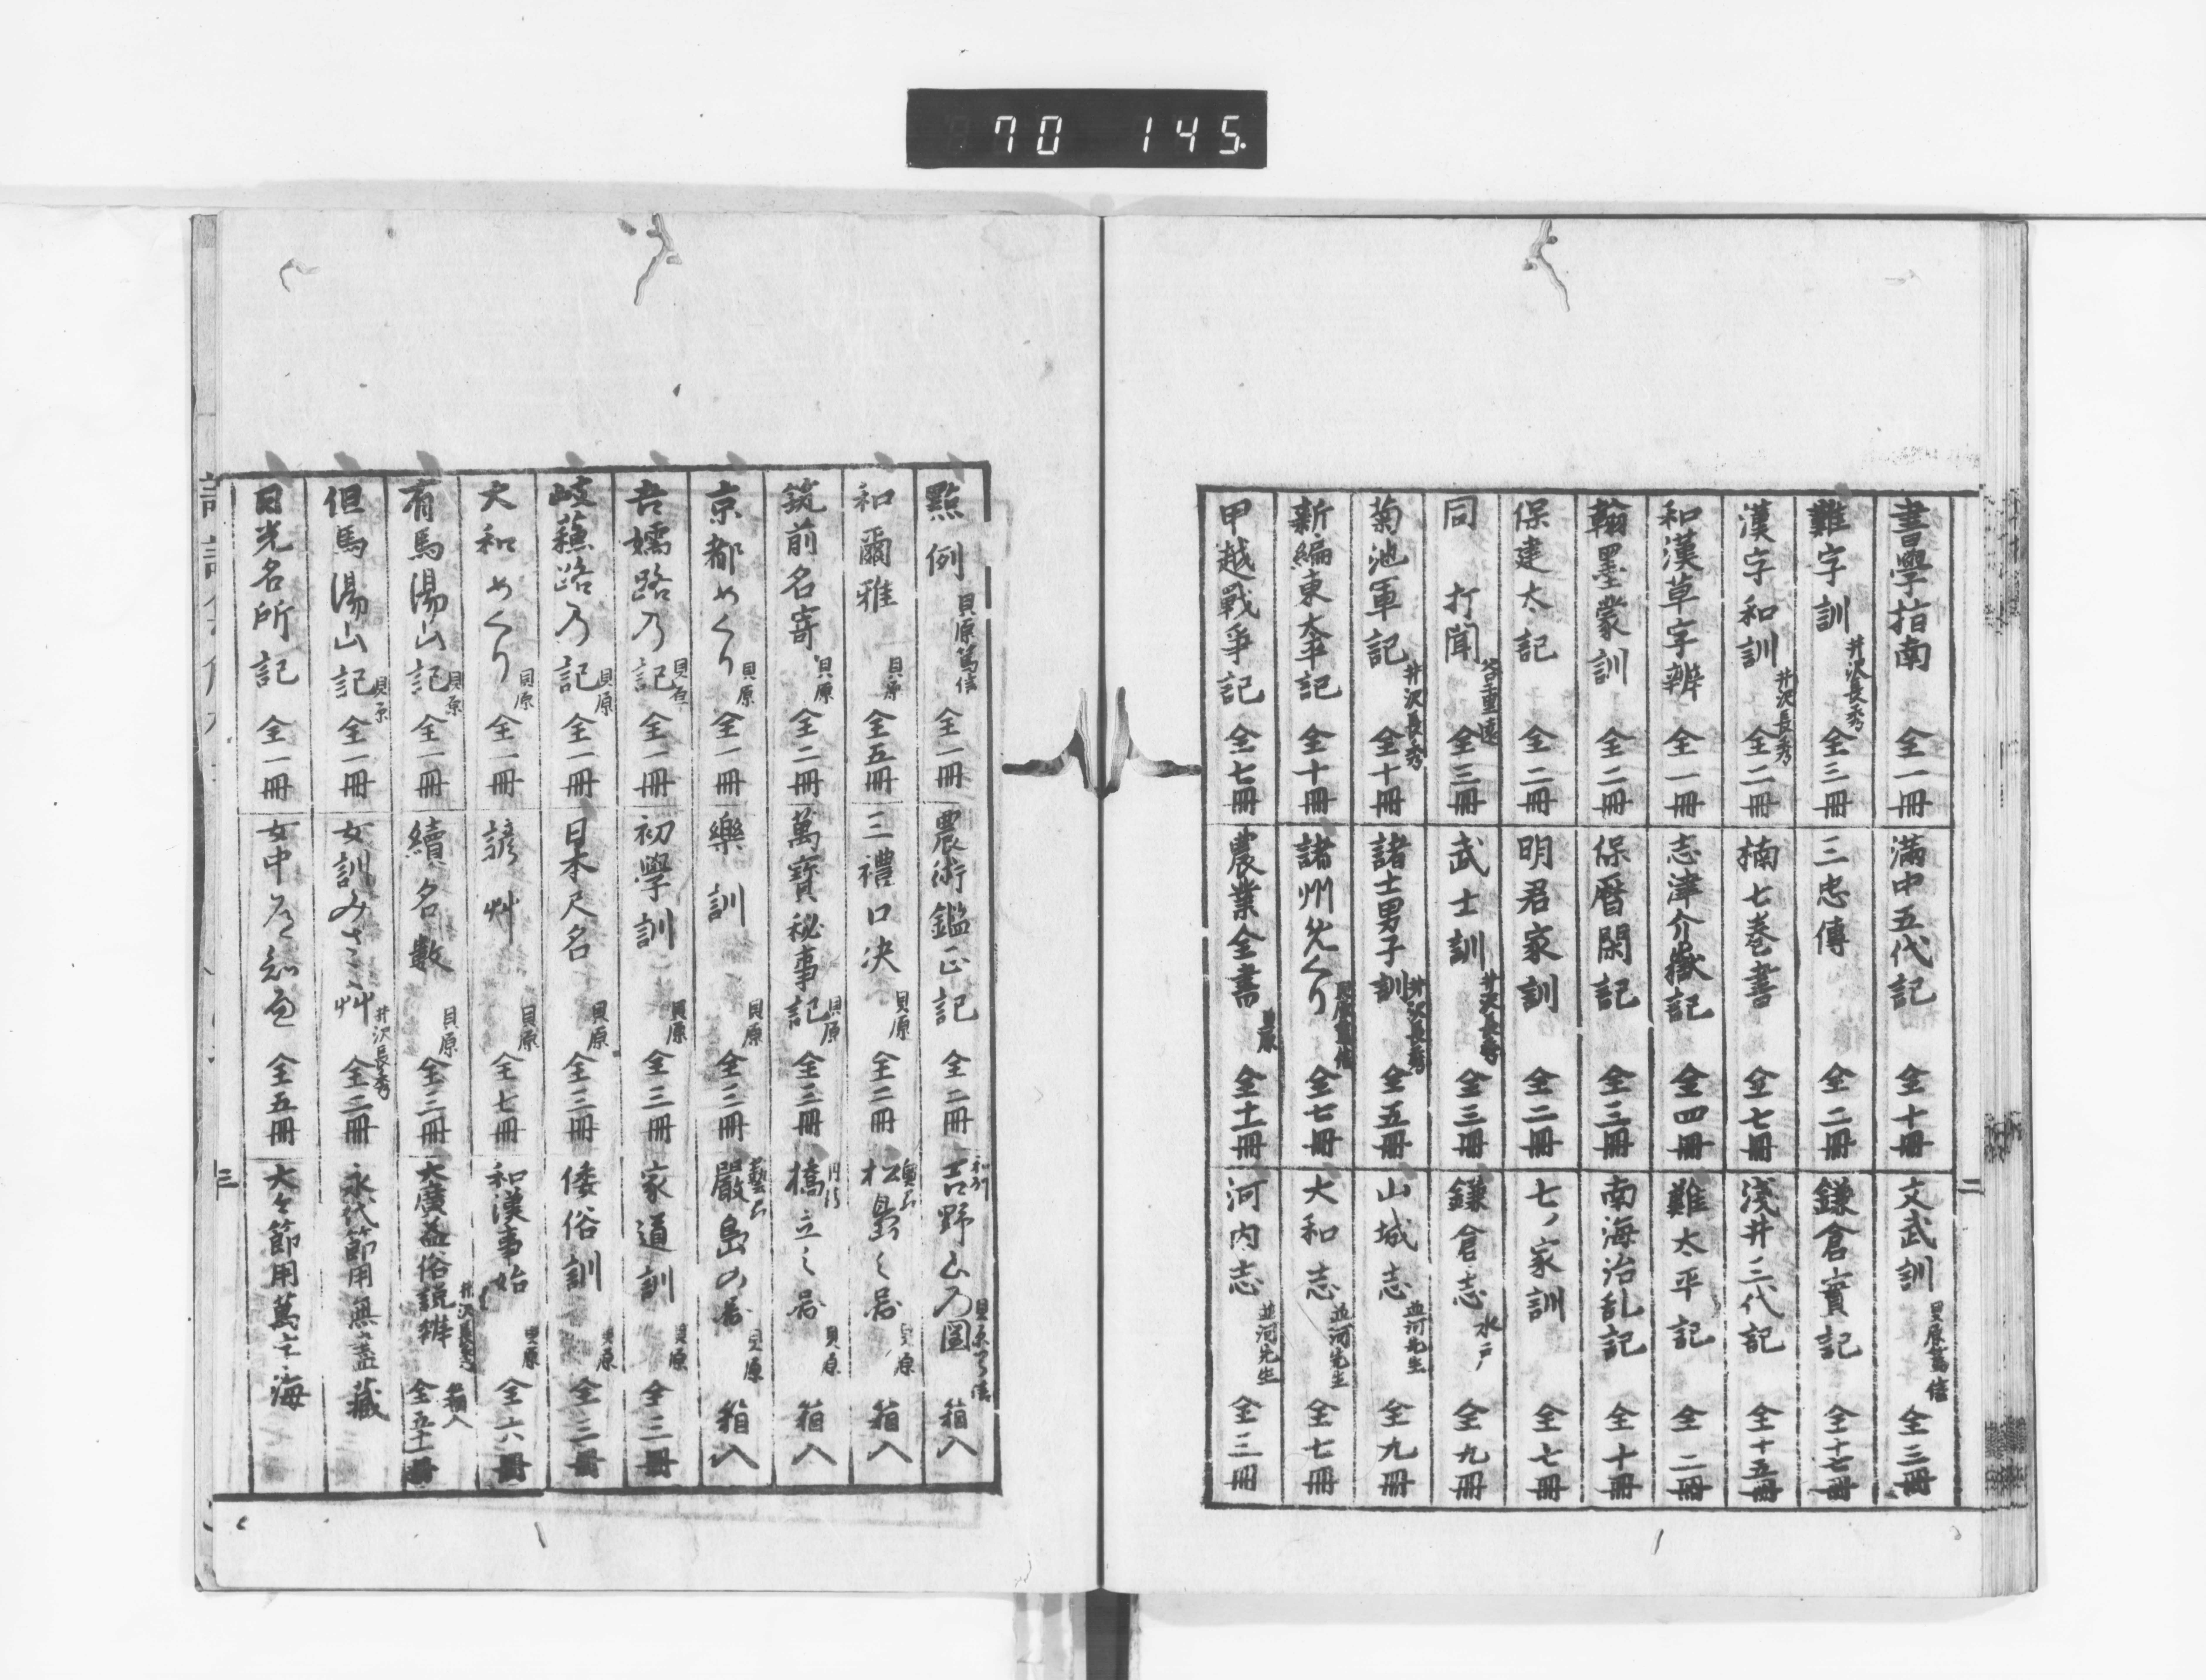 70 145.
書學指南 全一冊
難字訓 井沢長秀 全三冊
漢字和訓 井沢長秀 全二冊
和漢草字辨 全一冊
翰墨蒙訓 全二冊
保建大記 全二冊
同 打聞 谷重遠 全三冊
菊池軍記 井沢長秀 全十冊
新編東夲記 全十冊
甲越戰爭記 全七冊
満中五代記 全十冊
三忠傳 全二冊
楠七巻書 全七冊
志津介嶽記 全四冊
保暦間記 全三冊
明君家訓 全二冊
武士訓 井沢長秀 全三冊
諸士男子訓 井沢長秀 全五冊
諸州めくり 貝原篤信 全七冊
農業全書 貝原 全十一冊
二
文武訓 貝原篤信 全三冊
鎌倉實記 全十七冊
淺井三代記 全十五冊
難太平記 全二冊
南海治乱記 全十冊
七ノ家訓 全七冊
鎌倉志 水戸 全九冊
山城志 並河先生 全九冊
大和志 並河先生 全七冊
河内志 並河先生 全三冊
點例 貝原篤信 全一冊
和爾雅 貝原 全五冊
筑前名寄 貝原 全二冊
京都めくり 貝原 全一冊
吾嬬路乃記 貝原 全一冊
岐蘓路乃記 貝原 全一冊
大和めくり 同原 全一冊
有馬湯山記 貝原 全一冊
但馬湯山記 貝原 全一冊
日光名所記 全一冊
農術鑑正記 全二冊
三禮口决 貝原 全二冊
萬寳秘事記 貝原 全三冊
樂訓 貝原 全三冊
初學訓 貝原 全三冊
日本尺名 貝原 全三冊
諺艸 貝原 全七冊
續名數 貝原 全三冊
女訓みさこ艸 井沢長秀 全二冊
女中 全五冊
和州 吉野山乃圖 貝原 箱入
奥州 松島之啚 貝原 箱入
丹後 橋立之啚 貝原 箱入
藝州 嚴島の啚 貝原 箱入
家道訓 貝原 全二冊
倭俗訓 貝原 全三冊
和漢事始 貝原 全六冊
大廣益俗説辨 井沢長秀 箱入
永代節用無盡藏
大々節用萬字海
三